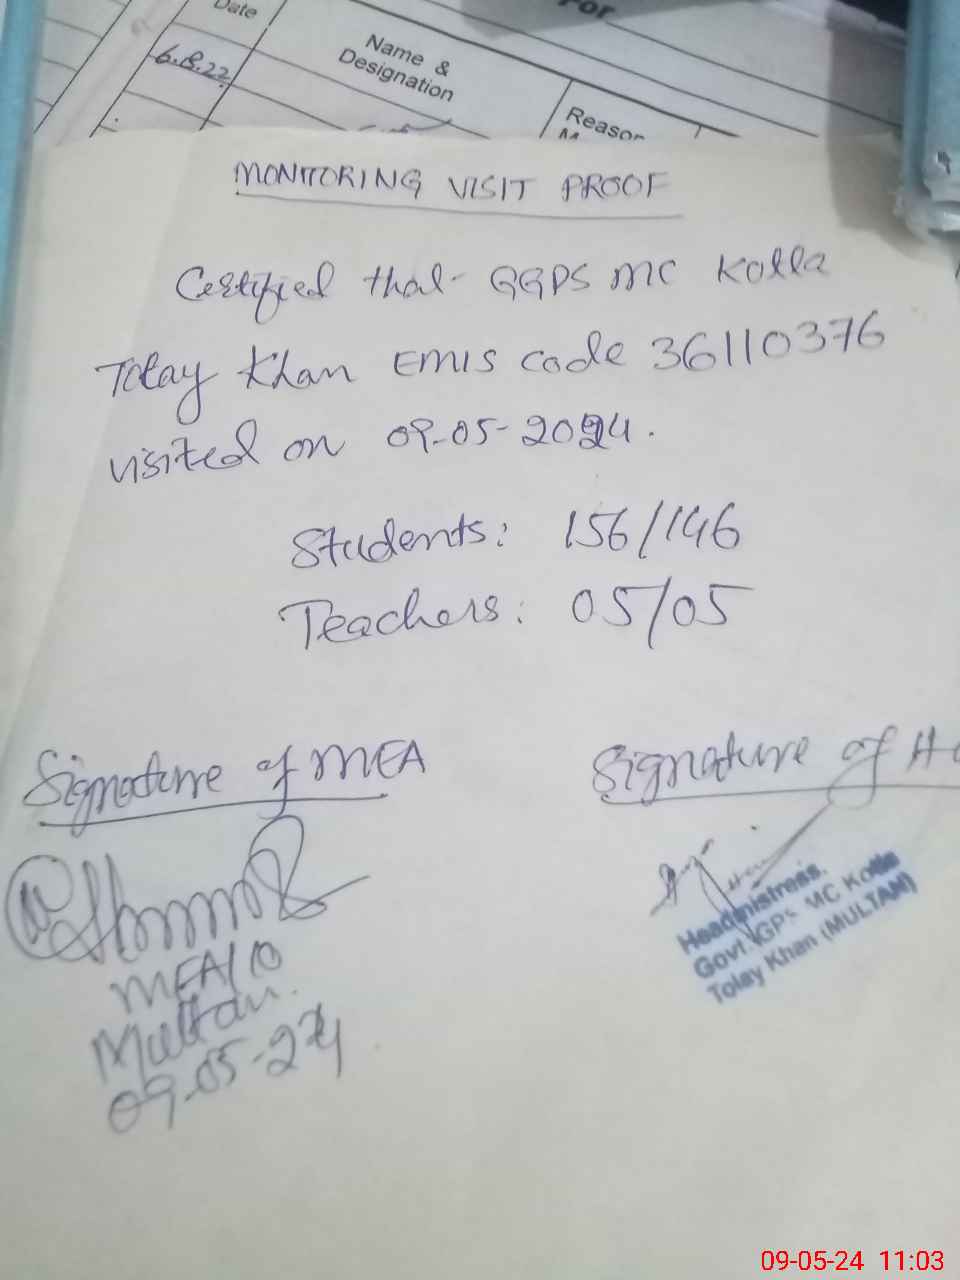 For
Date
Name &
Designation
Reason
6.8.22
MONITORING VISIT PROOF
Certified that GGPS MC Kotla
Tolay Khan EMIS code 36110376
visited on 09-05-2024.
Students: 156/146
Teachers: 05/05
Signature of MEA
Signature of H
MEA/10
Multan.
09-05-24
Headmistress.
Govt. GPS MC Kotla
Tolay Khan (MULTAN)
09-05-24 11:03